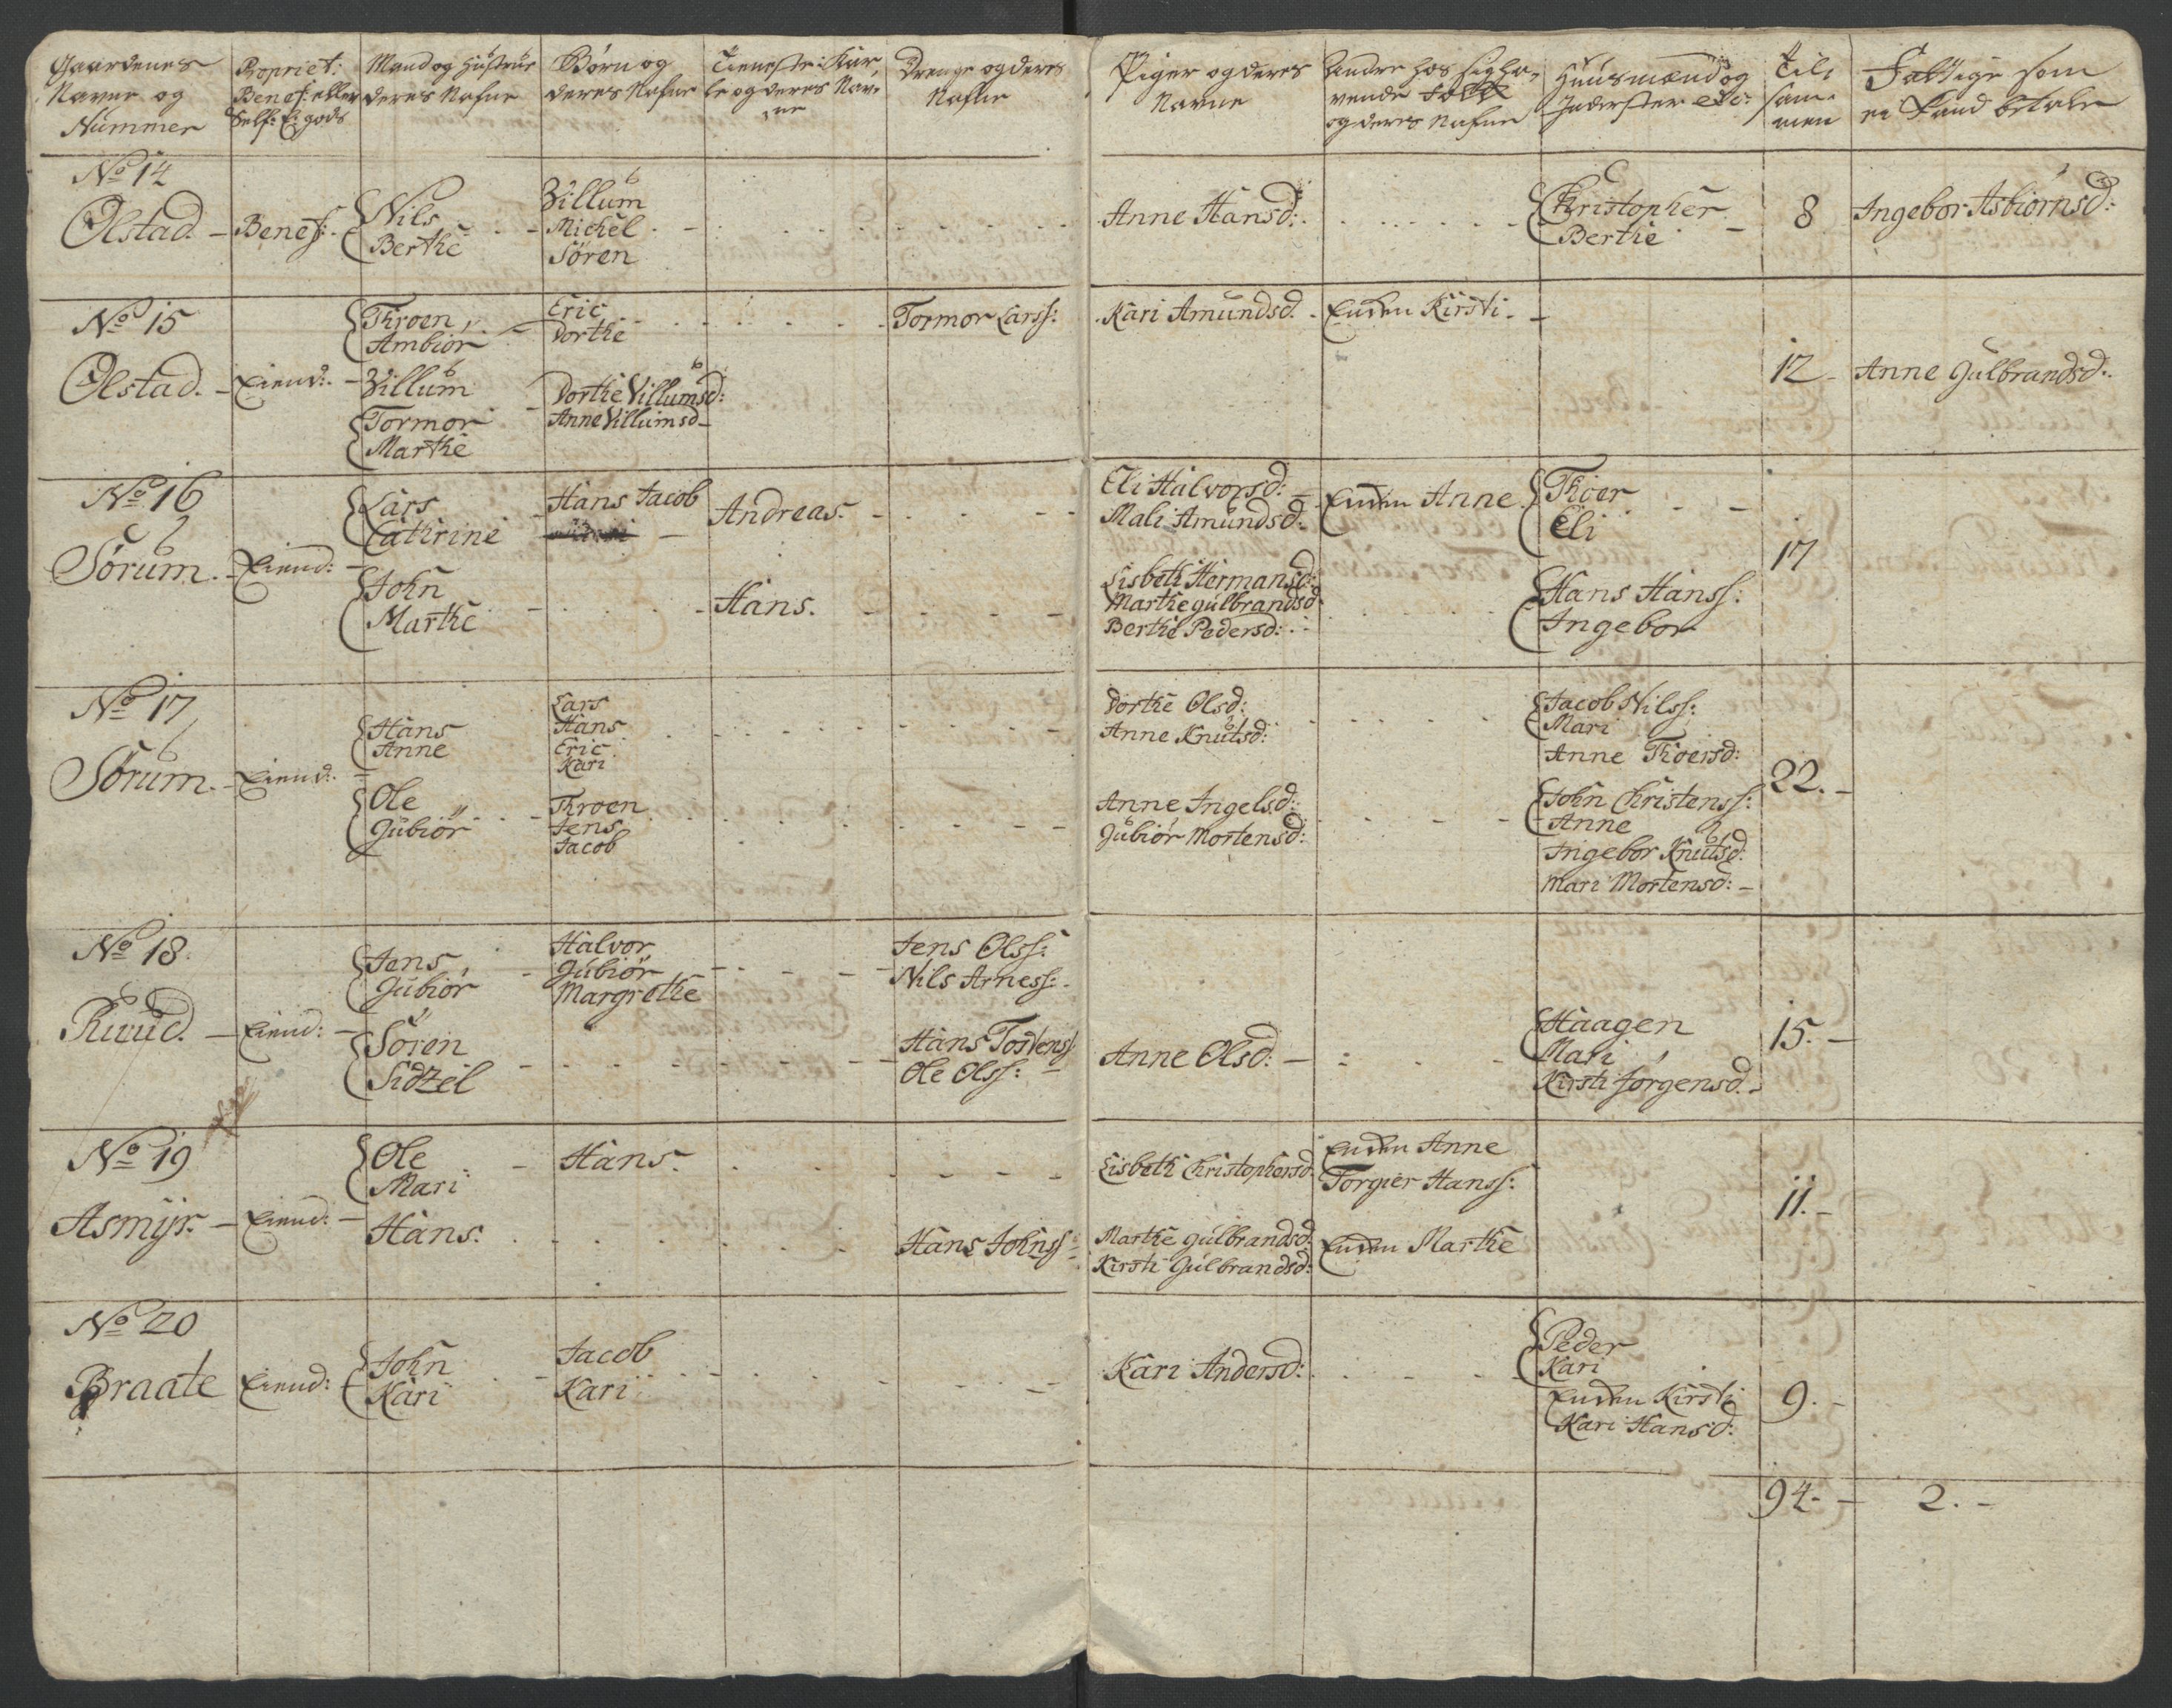 Gaardenes
Navne og
Nummer
Propriet:
Benef: eller
Self: E: gods
Mand og Hustrue
deres Nafne
Børn og
deres Nafne
Tieneste Kar
le og deres Nav,
ne
Drenge og deres
Nafne
Piger og deres
Navne
Andre hos sig ha,
vende
og deres Nafne
Huusmænd og
Inderster etc:
Til,
sam,
men
Fattige som
ei kand betale
No 14
Olstad. - Benef:
Nils
Berthe
Villum
Michel
Sören
Anne Hansd:
Christopher
Berthe
8
Ingebor Asbiörnsd:
No 15
Olstad. - Eiend:
Throen
Ambiör
Villum
Tormor
Marthe
Eric
Dorthe
Dorthe Villumsd:
Anne Villumsd
Tormor Larss:
Kari Amundsd.
Enken Kirsti
12
Anne Gulbrandsd:
No 16
Sörum. - Eiend:
Lars
Cathrine
John
Marthe
Hans Jacob
Andreas.
Hans.
Eli Halvorsd:
Mali Amundsd:
Lisbeth Hermansd:
Marthe gulbrandsd
Berthe Pedersd:
Enken Anne
Thoer
Eli
Hans Hanss:
Ingebor
17
No 17
Sörum. - Eiend:
Hans
Anne
Ole
Gubiör
Lars
Hans
Eric
Kari
Throen
Jens
Jacob
Dorthe Olsd:
Anne Knutsd:
Anne Ingelsd:
Gubiör Mortensd:
Jacob Nilss:
Mari
Anne Thoersd:
John Christenss:
Anne
Ingebor Knutsd:
Mari Mortensd:
22.
No 18
Ruud. - Eiend:
Jens
Gubiör
Sören
Sidzel
Halvor
Gubiör
Margrethe
Jens Olss:
Nils Arness:
Hans Tostenss
Ole Olss:
Anne Olsd:
Haagen
Mari
Kirsti Jörgensd.
15.
No 19
Asmyr. - Eiend:
Ole
Mari
Hans:
Hans.
Hans Johnss
Lisbeth Christophersd
Marthe gulbrandsd:
Kirsti Gulbrandsd:
Enken Anne
Torgier Hanss:
Enken Marthe
11.
No 20
Braate Eiend:
John
Kari
Jacob
Kari
Kari Andersd:
Peder
Kari
Enken Kirsti
Kari Hansd:
9.
94. 2.